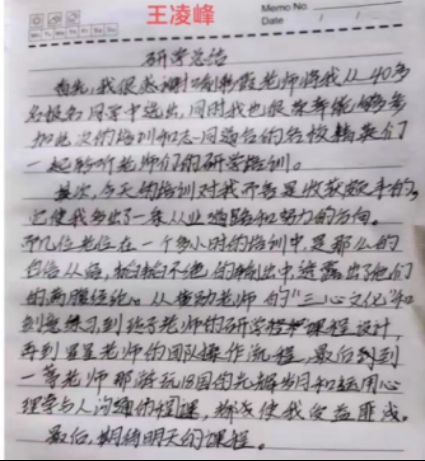 王凌峰
Memo No.
Date
Mo Tu We Th Fr Sa Su
研学总结
首先,我很感谢刘教授老师将我从40多
名报名同学中选出,同时我也很荣幸能够参
加此次的培训和志同道合的各校精英们
一起聆听老师们的研学培训。
其次,今天的培训对我而言是收获颇丰的,
它使我多出了一条从业的路和努力的方向。
几位老师在一个多小时的培训中,是那么的
自信从容,滔滔不绝的输出中透露出了他们
的满腹经纶。从 老师的“三心文化”和
刻意练习,到 老师的研学 课程设计,
再到星星老师的团队操作流程,最后到
一 老师那游玩18国的光辉岁月和运用心
理学与人沟通的 课,都使我受益匪浅。
最后,期待明天的课程。